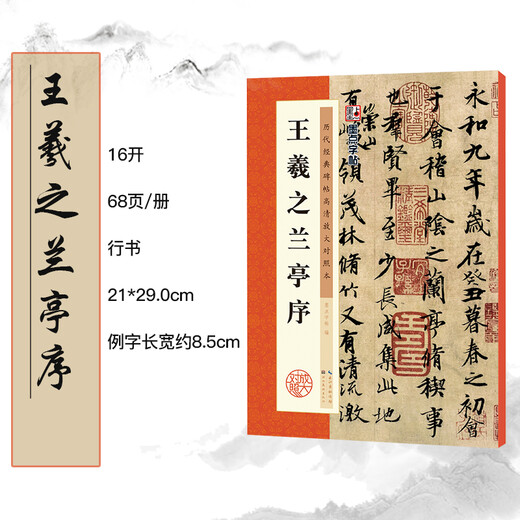 王羲之兰亭序
16开
68页/册
行书
21*29.0cm
例字长宽约8.5cm
历代经典碑帖高清放大对照本
王羲之兰亭序
墨点字帖
放大对照
永和九年歲在癸丑暮春之初會
于會稽山陰之蘭亭脩稧事
也羣賢畢至少長咸集此地
有崇山峻領茂林脩竹又有清流激